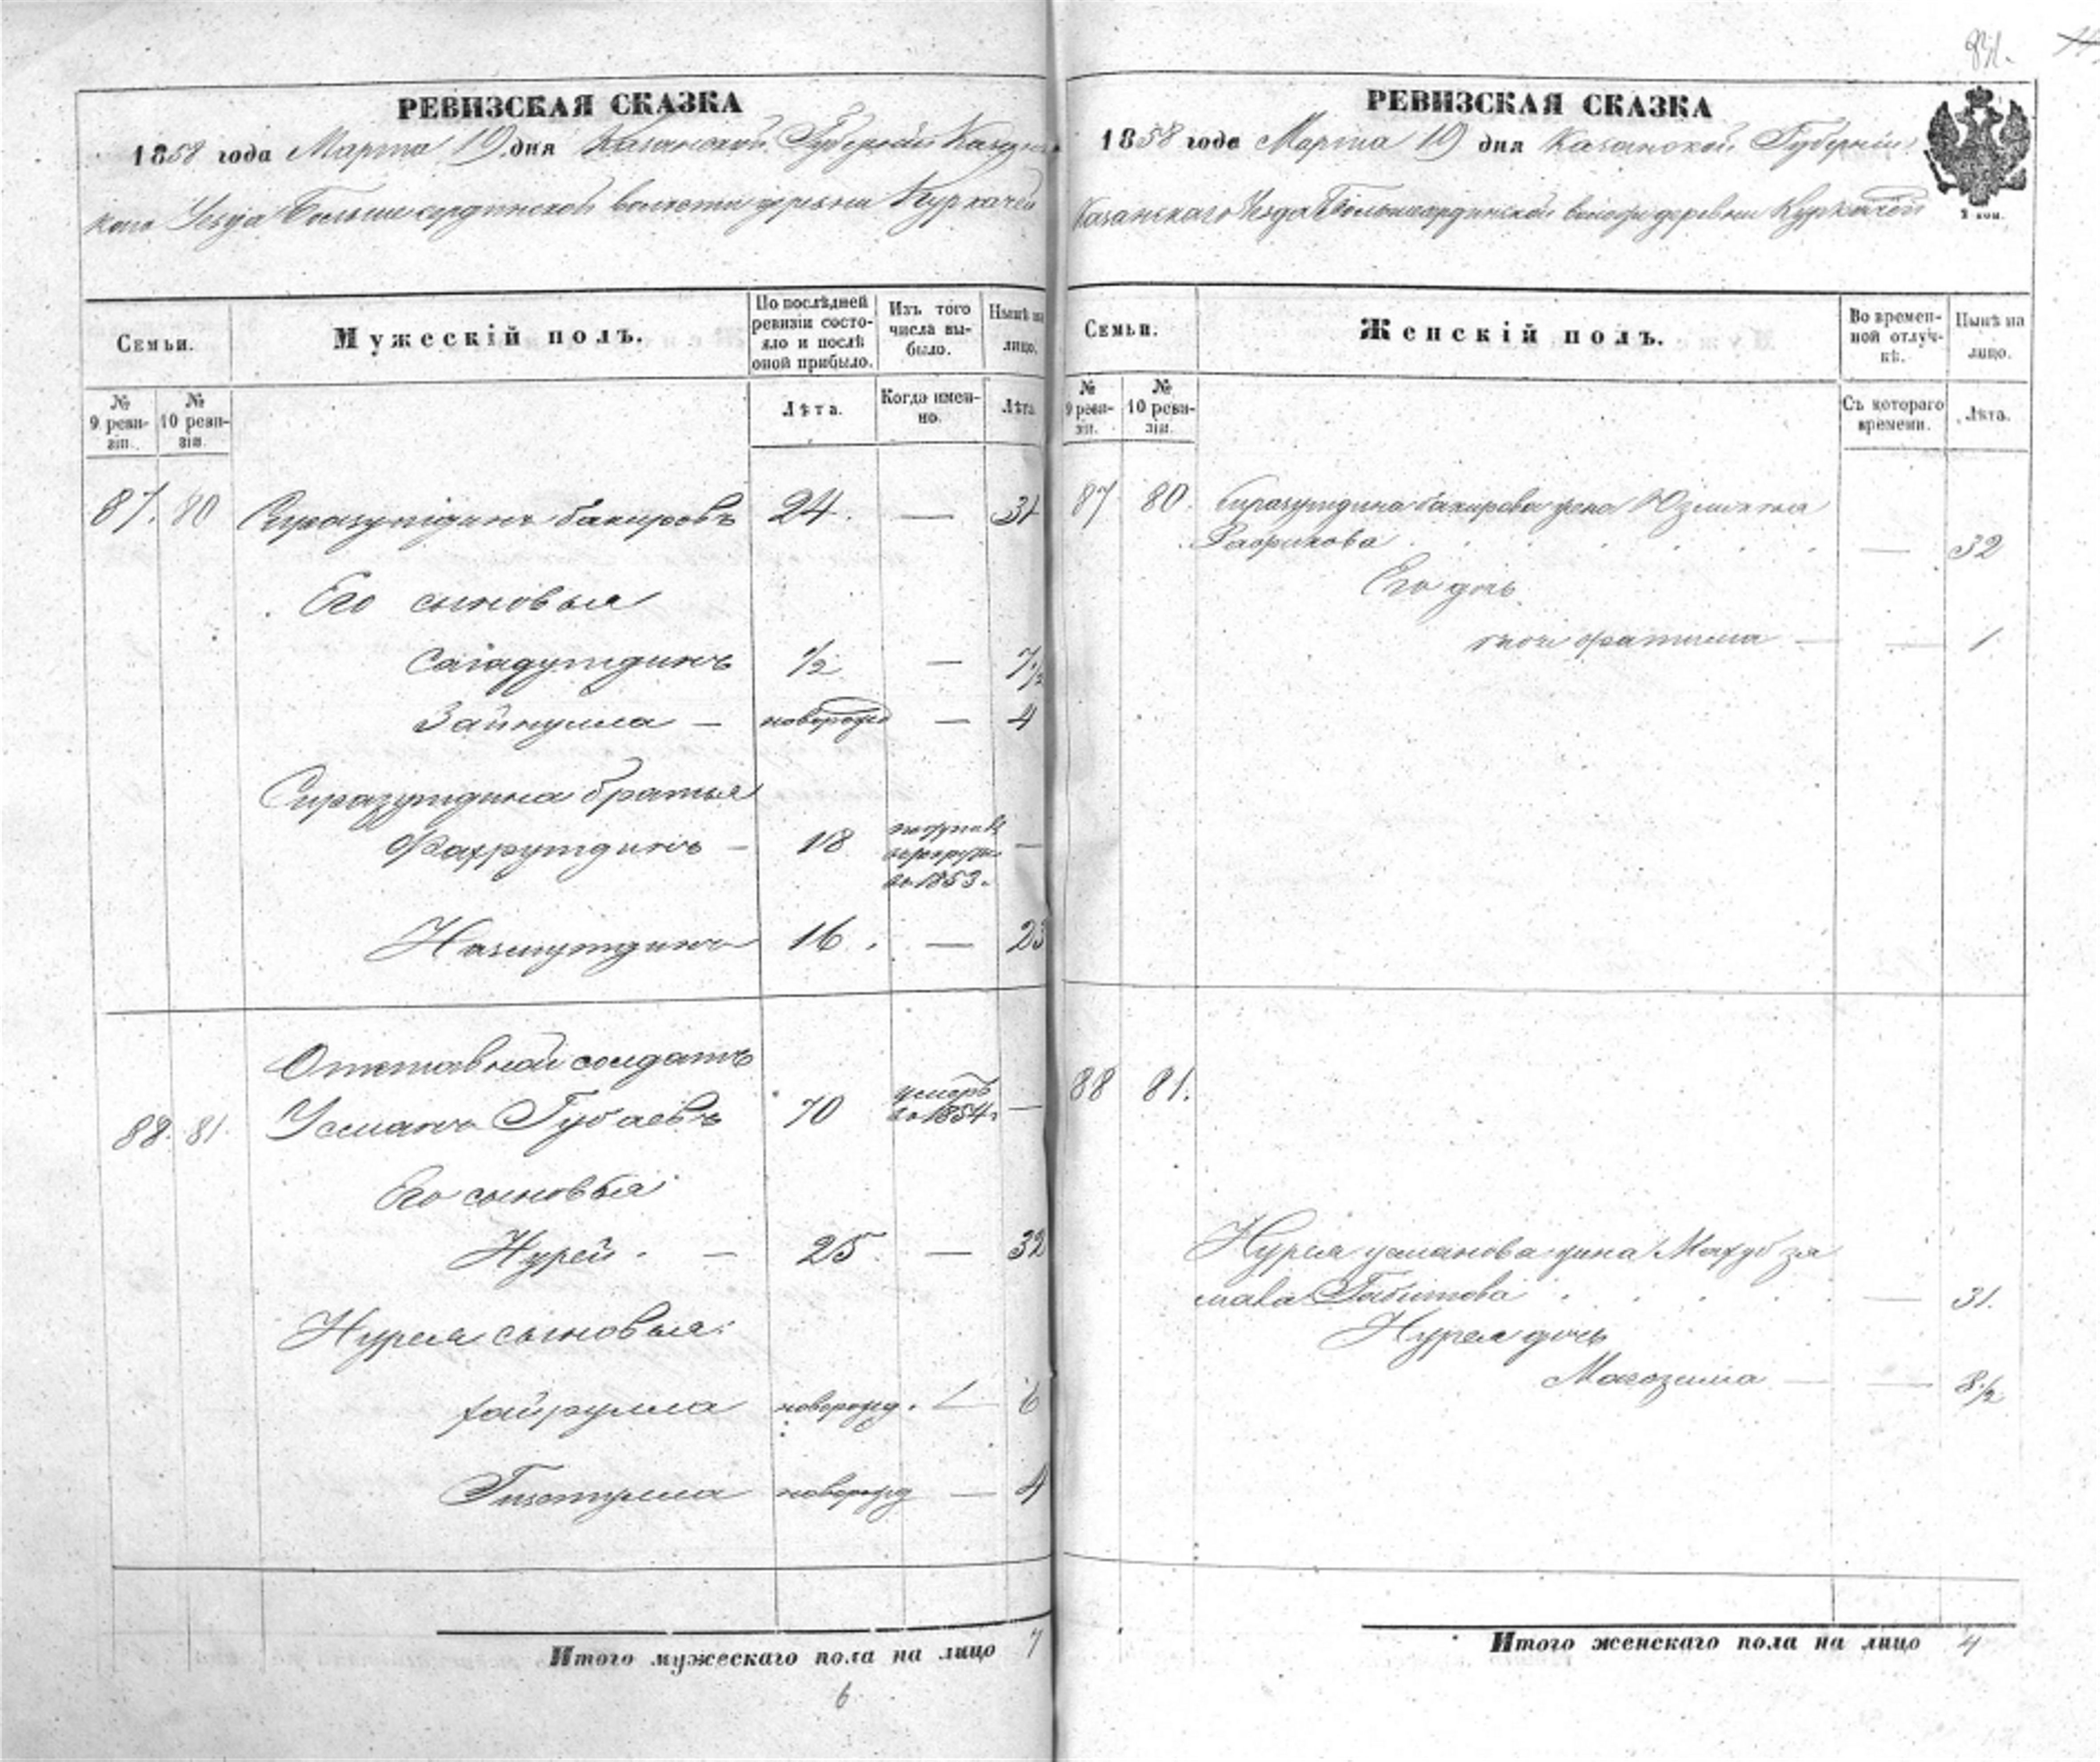 РЕВИЗСКАЯ СКАЗКА
1858 года Марта 19 дня Казанской Губернии Казан
кого Уезда Больше сердинской волости деревни Куркачей
Семьи.
Мужескій полъ.
По послѣдней ревизіи состояло и послѣ оной прибыло.
Изъ того числа выбыло.
Нынѣ на лицо.
№ 9 ревизіи.
№ 10 ревизіи.
Лѣта.
Когда именно.
Лѣта.
87. 80 Сиразутдинъ Бакировъ 24. — 31
Его сыновья
Сагадутдинъ 1/2 — 7 1/2
Зайнулла — новорожд — 4
Сиразутдина братья
Фахрутдинъ — 18 —
въ 1853.
Назмутдинъ 16. — 23
Отставной солдатъ
88. 81. Усманъ Губаевъ 70 умеръ въ 1854. —
Его сыновья
Нурей. — 25 — 32
Нурея сыновья:
Хайрулла новорожд. — 6
Гизатулла новорожд — 4
Итого мужескаго пола на лицо 7
6
84.
РЕВИЗСКАЯ СКАЗКА
1858 года Марта 19 дня Казанской Губерніи
Казанскаго Уезда Большесердинской волости деревни Куркачей
Семьи.
Женскій полъ.
Во временной отлучкѣ.
Нынѣ на лицо.
№ 9 ревизіи.
№ 10 ревизіи.
Съ котораго времени.
Лѣта.
87 80. Сиразутдина Бакирова жена
— 32
Его дочь
Фатима — — 1
88 81.
Нурея Усманова жена Махубза
мала Габитова — 31.
Нурея дочь
— — 8 1/2
Итого женскаго пола на лицо 4